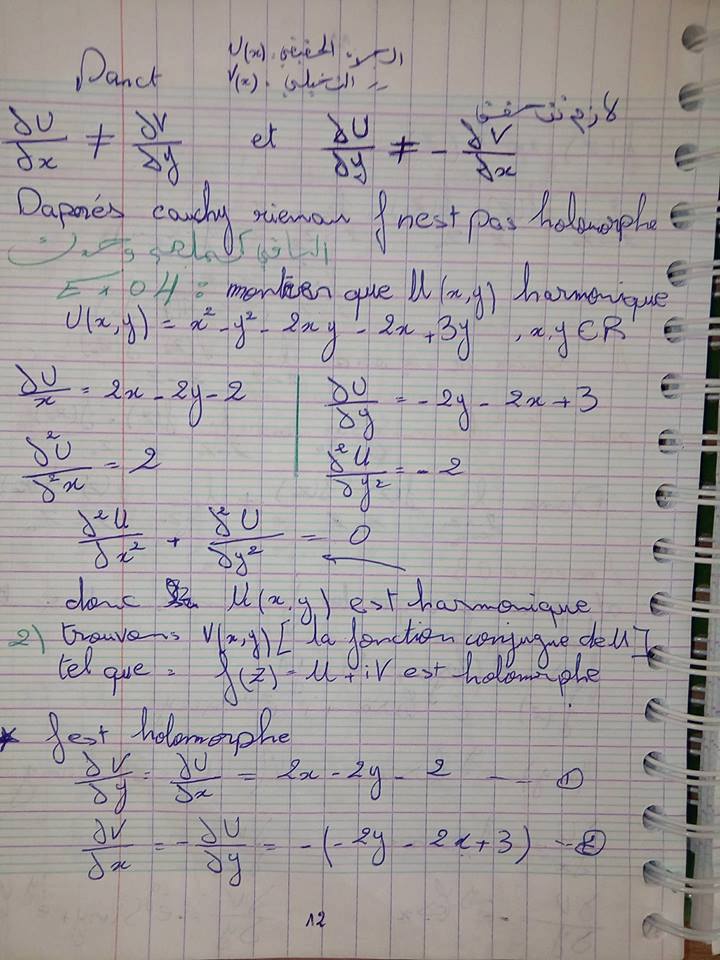 U(x)
Donct V(x)
∂U/∂x ≠ ∂V/∂y et ∂U/∂y ≠ - ∂V/∂x
Daprés cauchy rieman f nest pas holomorphe
Exo4: montrer que U(x,y) harmonique
U(x,y) = x² - y² - 2xy - 2x + 3y , x,y ∈ R
∂U/x = 2x - 2y - 2 | ∂U/∂y = - 2y - 2x + 3
∂²U/∂²x = 2 | ∂²U/∂y² = - 2
∂²U/∂x² + ∂²U/∂y² = 0
donc U(x,y) est harmonique
2) trouvons V(x,y) [la fonction conjugue de U]
tel que = f(z) = U + iV est holomorphe
* f est holomorphe
∂V/∂y = ∂U/∂x = 2x - 2y - 2 --- ①
∂V/∂x = - ∂U/∂y = - (-2y - 2x + 3) -- ②
12